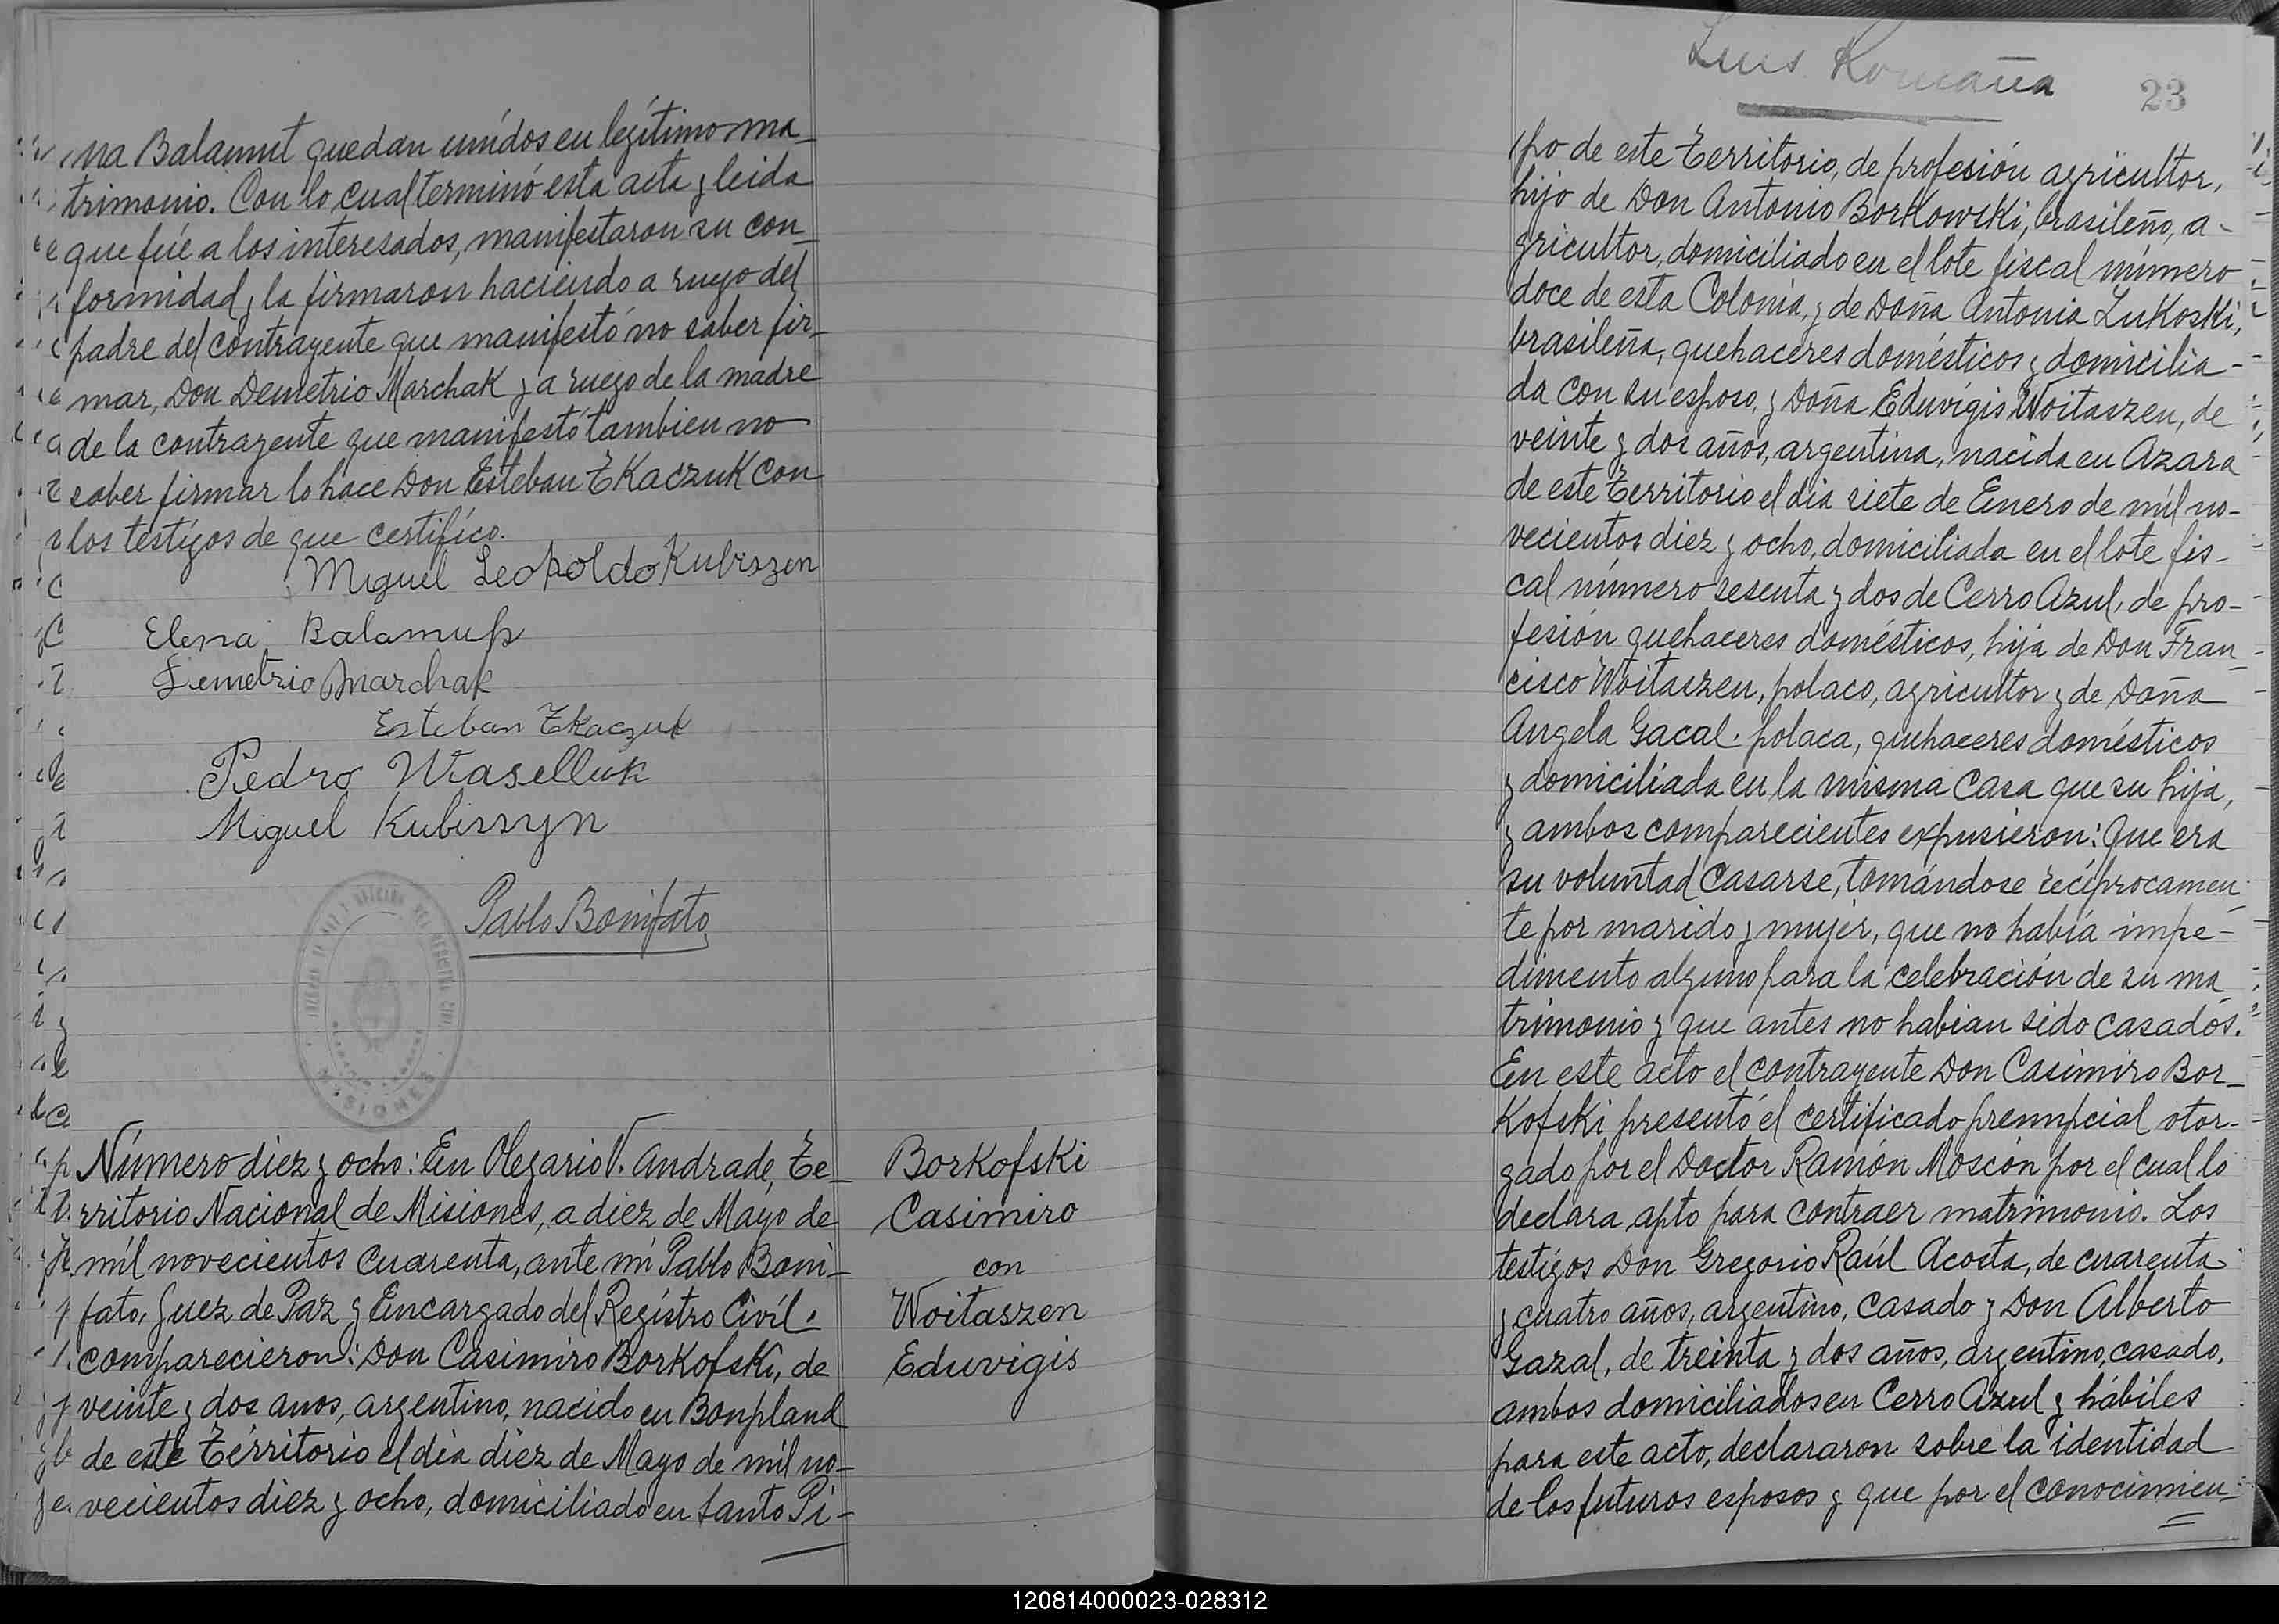 na Balamut quedan unídos en legítimo ma_
trimonio. Con lo cual terminó esta acta y leida
que fué a los interesados, manifestaron su con_
formidad y la firmaron haciendo a ruego del
padre del contrayente que manifestó no saber fir_
mar, Don Demetrio Marchak y a ruego de la madre
de la contrayente que manifestó tambien no
saber firmar lo hace Don Esteban Tkaczuk con
los testigos de que certifico.
Miguel Leopoldo Kubiszen
Elena Balamut
Demetrio Marchak
Esteban Tkaczuk
Pedro Waselluk
Miguel Kubiszyn
Pablo Bonifato
MISIONES
Número diez y ocho: En Olegario V. Andrade, Te_
rritorio Nacional de Misiones, a diez de Mayo de
mil novecientos cuarenta, ante mí Pablo Boni_
fato, Juez de Paz y Encargado del Registro Civíl,
comparecieron: Don Casimiro Borkofski, de
veinte y dos anos, argentino, nacido en Bonpland
de este Territorio el día diez de Mayo de mil no_
vecientos diez y ocho, domiciliado en Santo Pi_
Borkofski
Casimiro
con
Woitaszen
Eduvigis
Luis Romaña
23
po de este Territorio, de profesión agricultor,
hijo de Don Antonio Borkowski, brasileño, a-
gricultor, domiciliado en el lote fiscal número
doce de esta Colonia, y de Doña Antonia Lukoski,
brasileña, quehaceres domésticos y domicilia-
da con su esposo, y Doña Eduvígis Woitaszen, de
veinte y dos años, argentina, nacida en Azara
de este Territorio el día siete de Enero de mil no-
vecientos diez y ocho, domiciliada en el lote fis-
cal número sesenta y dos de Cerro Azul, de pro-
fesión quehaceres domésticos, hija de Don Fran_
cisco Woitaszen, polaco, agricultor y de Doña
Angela Gacal, polaca, quehaceres domésticos
y domiciliada en la misma casa que su hija,
y ambos comparecientes expusieron: Que era
su voluntad casarse, tomándose recíprocamen_
te por marido y mujer, que no había impe-
dimento alguno para la celebración de su ma_
trimonio y que antes no habian sido casados.
En este acto el contrayente Don Casimiro Bor_
kofski presentó el certificado prenupcial otor-
gado por el Doctor Ramón Moscón por el cual lo
declara apto para contraer matrimonio. Los
testigos Don Gregorio Raúl Acosta, de cuarenta
y cuatro años, argentino, casado y Don Alberto
Gazal, de treinta y dos años, argentino, casado,
ambos domiciliados en Cerro Azul y hábiles
para este acto, declararon sobre la identidad
de los futuros esposos y que por el conocimien_
120814000023-028312